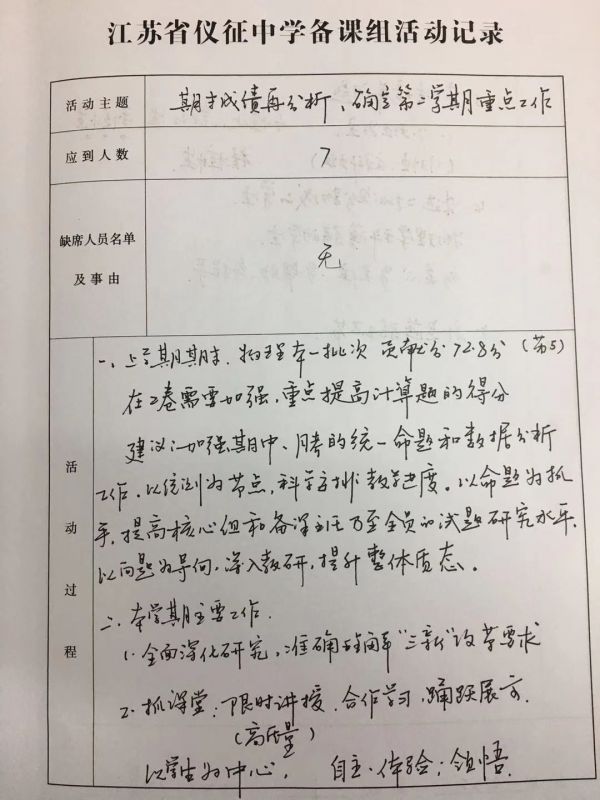 江苏省仪征中学备课组活动记录
活动主题 期末成绩再分析、确定第二学期重点工作
应到人数 7
缺席人员名单
及事由
无
活动过程
一、上学期期末,物理本一批次 贡献分72.8分(第5)
在2卷需要加强,重点提高计算题的得分
建议:加强期中、月考的统一命题和数据分析
工作。以统测为节点,科学安排教学进度。以命题为抓
手,提高核心组和备课主任乃至全员的试题研究水平,
以问题为导向,深入教研,提升整体质态。
二、本学期主要工作.
1. 全面深化研究,准确 "三新"改革要求
2. 抓课堂:限时讲授、合作学习,踊跃展示.
(高质量)
以学生为中心, 自主、体验;领悟.